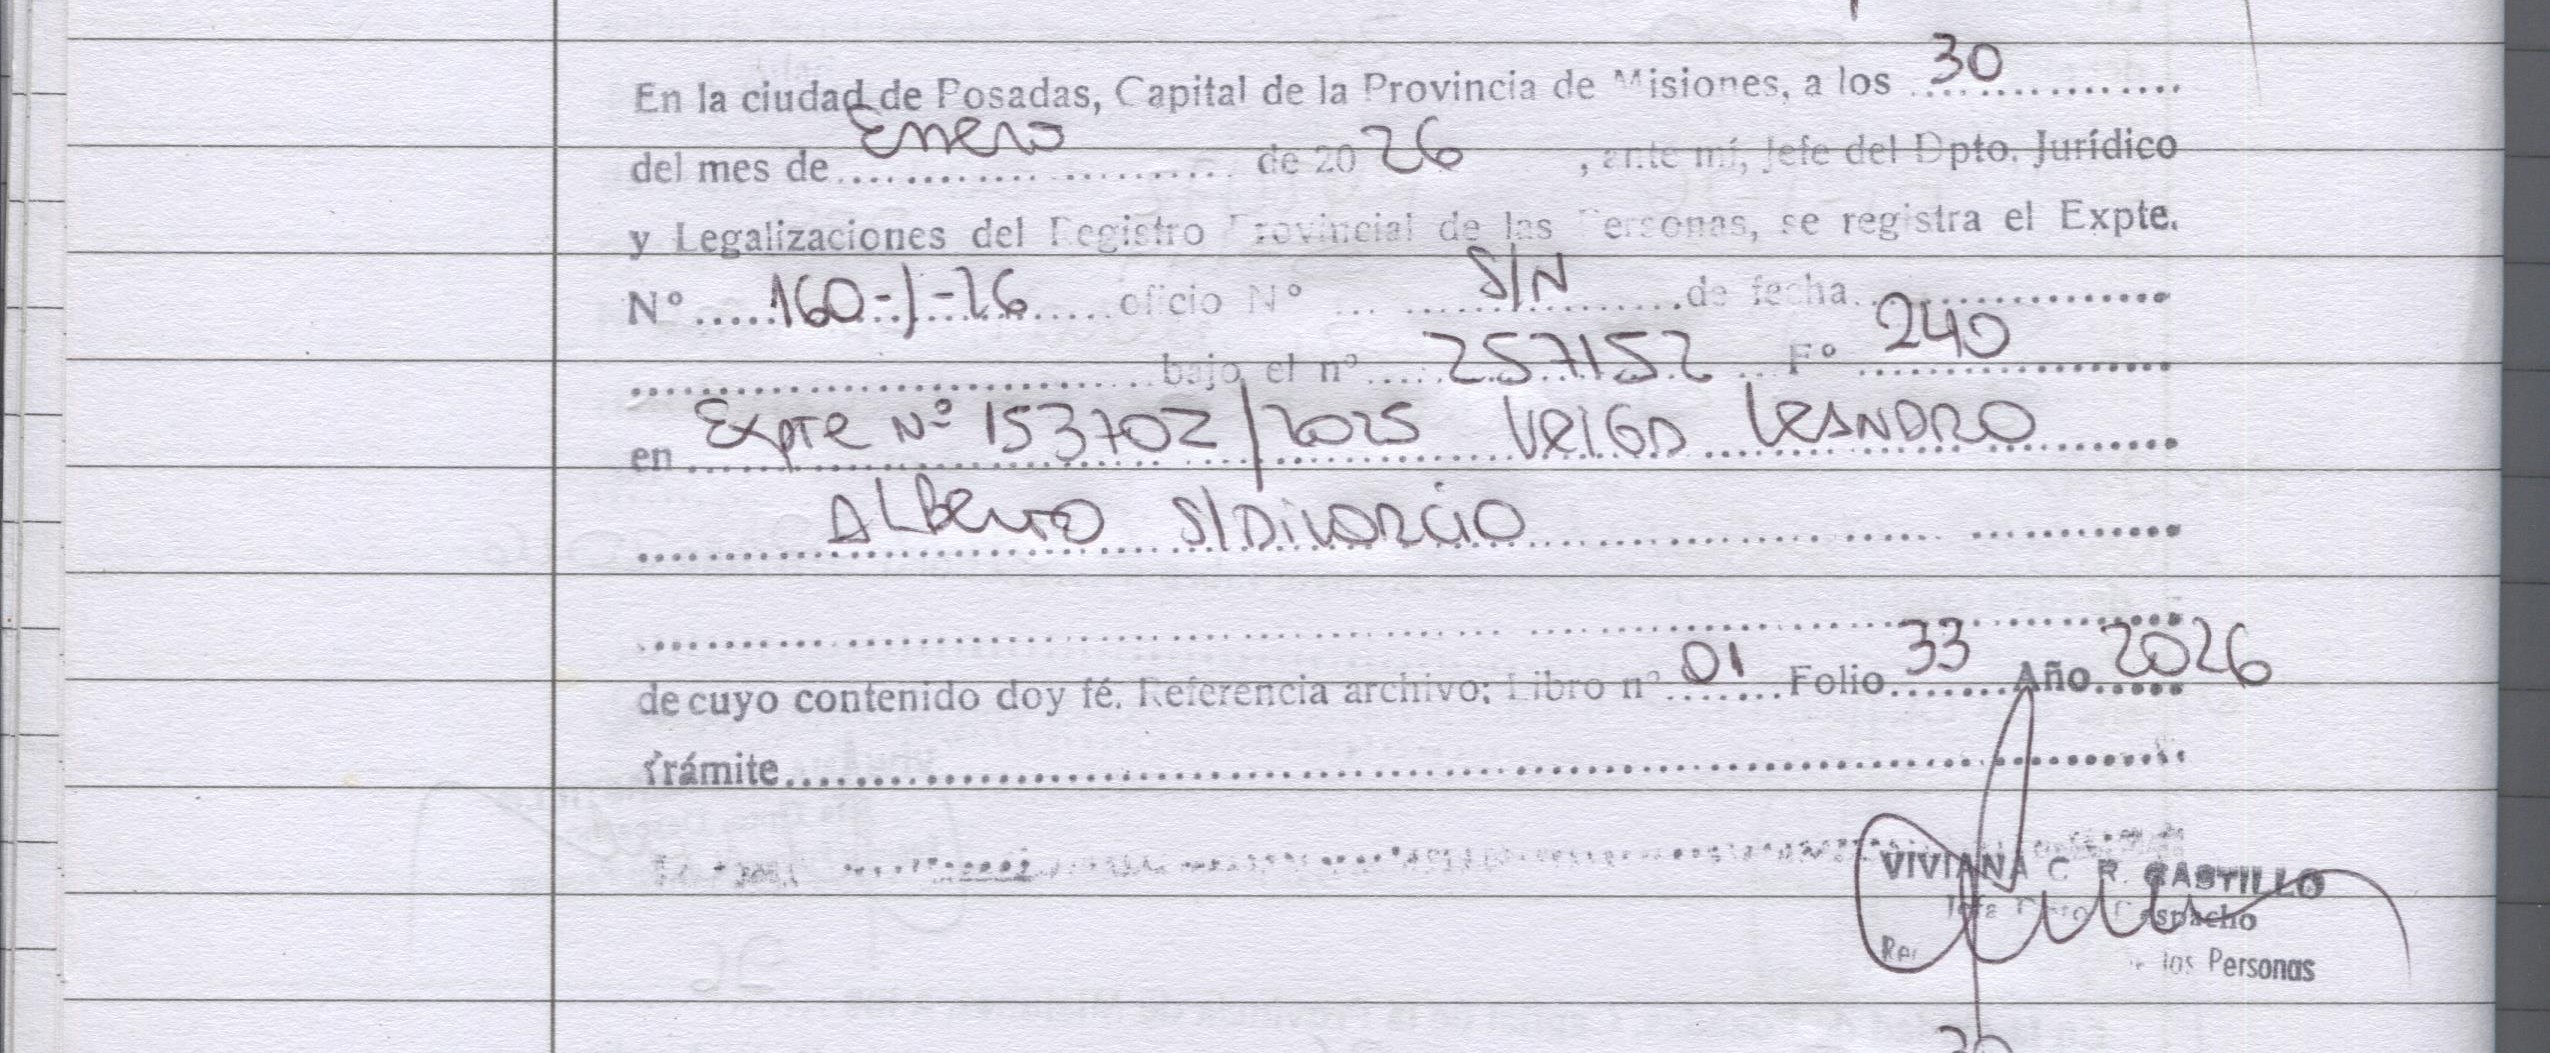 En la ciudad de Posadas, Capital de la Provincia de Misiones, a los 30
del mes de Enero de 2026, ante mí, Jefe del Dpto. Jurídico
y Legalizaciones del Registro Provincial de las Personas, se registra el Expte.
Nº 160-J-26 oficio Nº S/N de fecha
bajo el nº 257152 Fº 240
en Expte Nº 153702/2025 Veiga Leandro
Alberto S/Divorcio
de cuyo contenido doy fé. Referencia archivo: Libro nº 01 Folio 33 Año 2026
Trámite
VIVIANA C. R. CASTILLO
Jefa Dpto. Despacho
las Personas